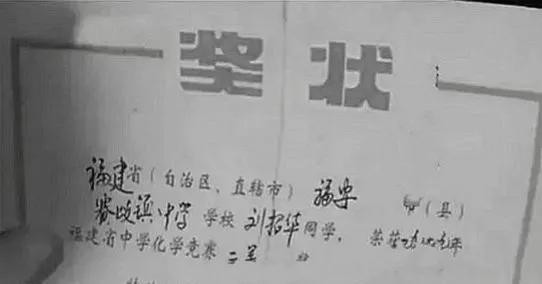 奖状
福建省（自治区、直辖市）福安（县）
赛岐镇中学学校刘招华同学，荣获
福建省中学化学竞赛二等